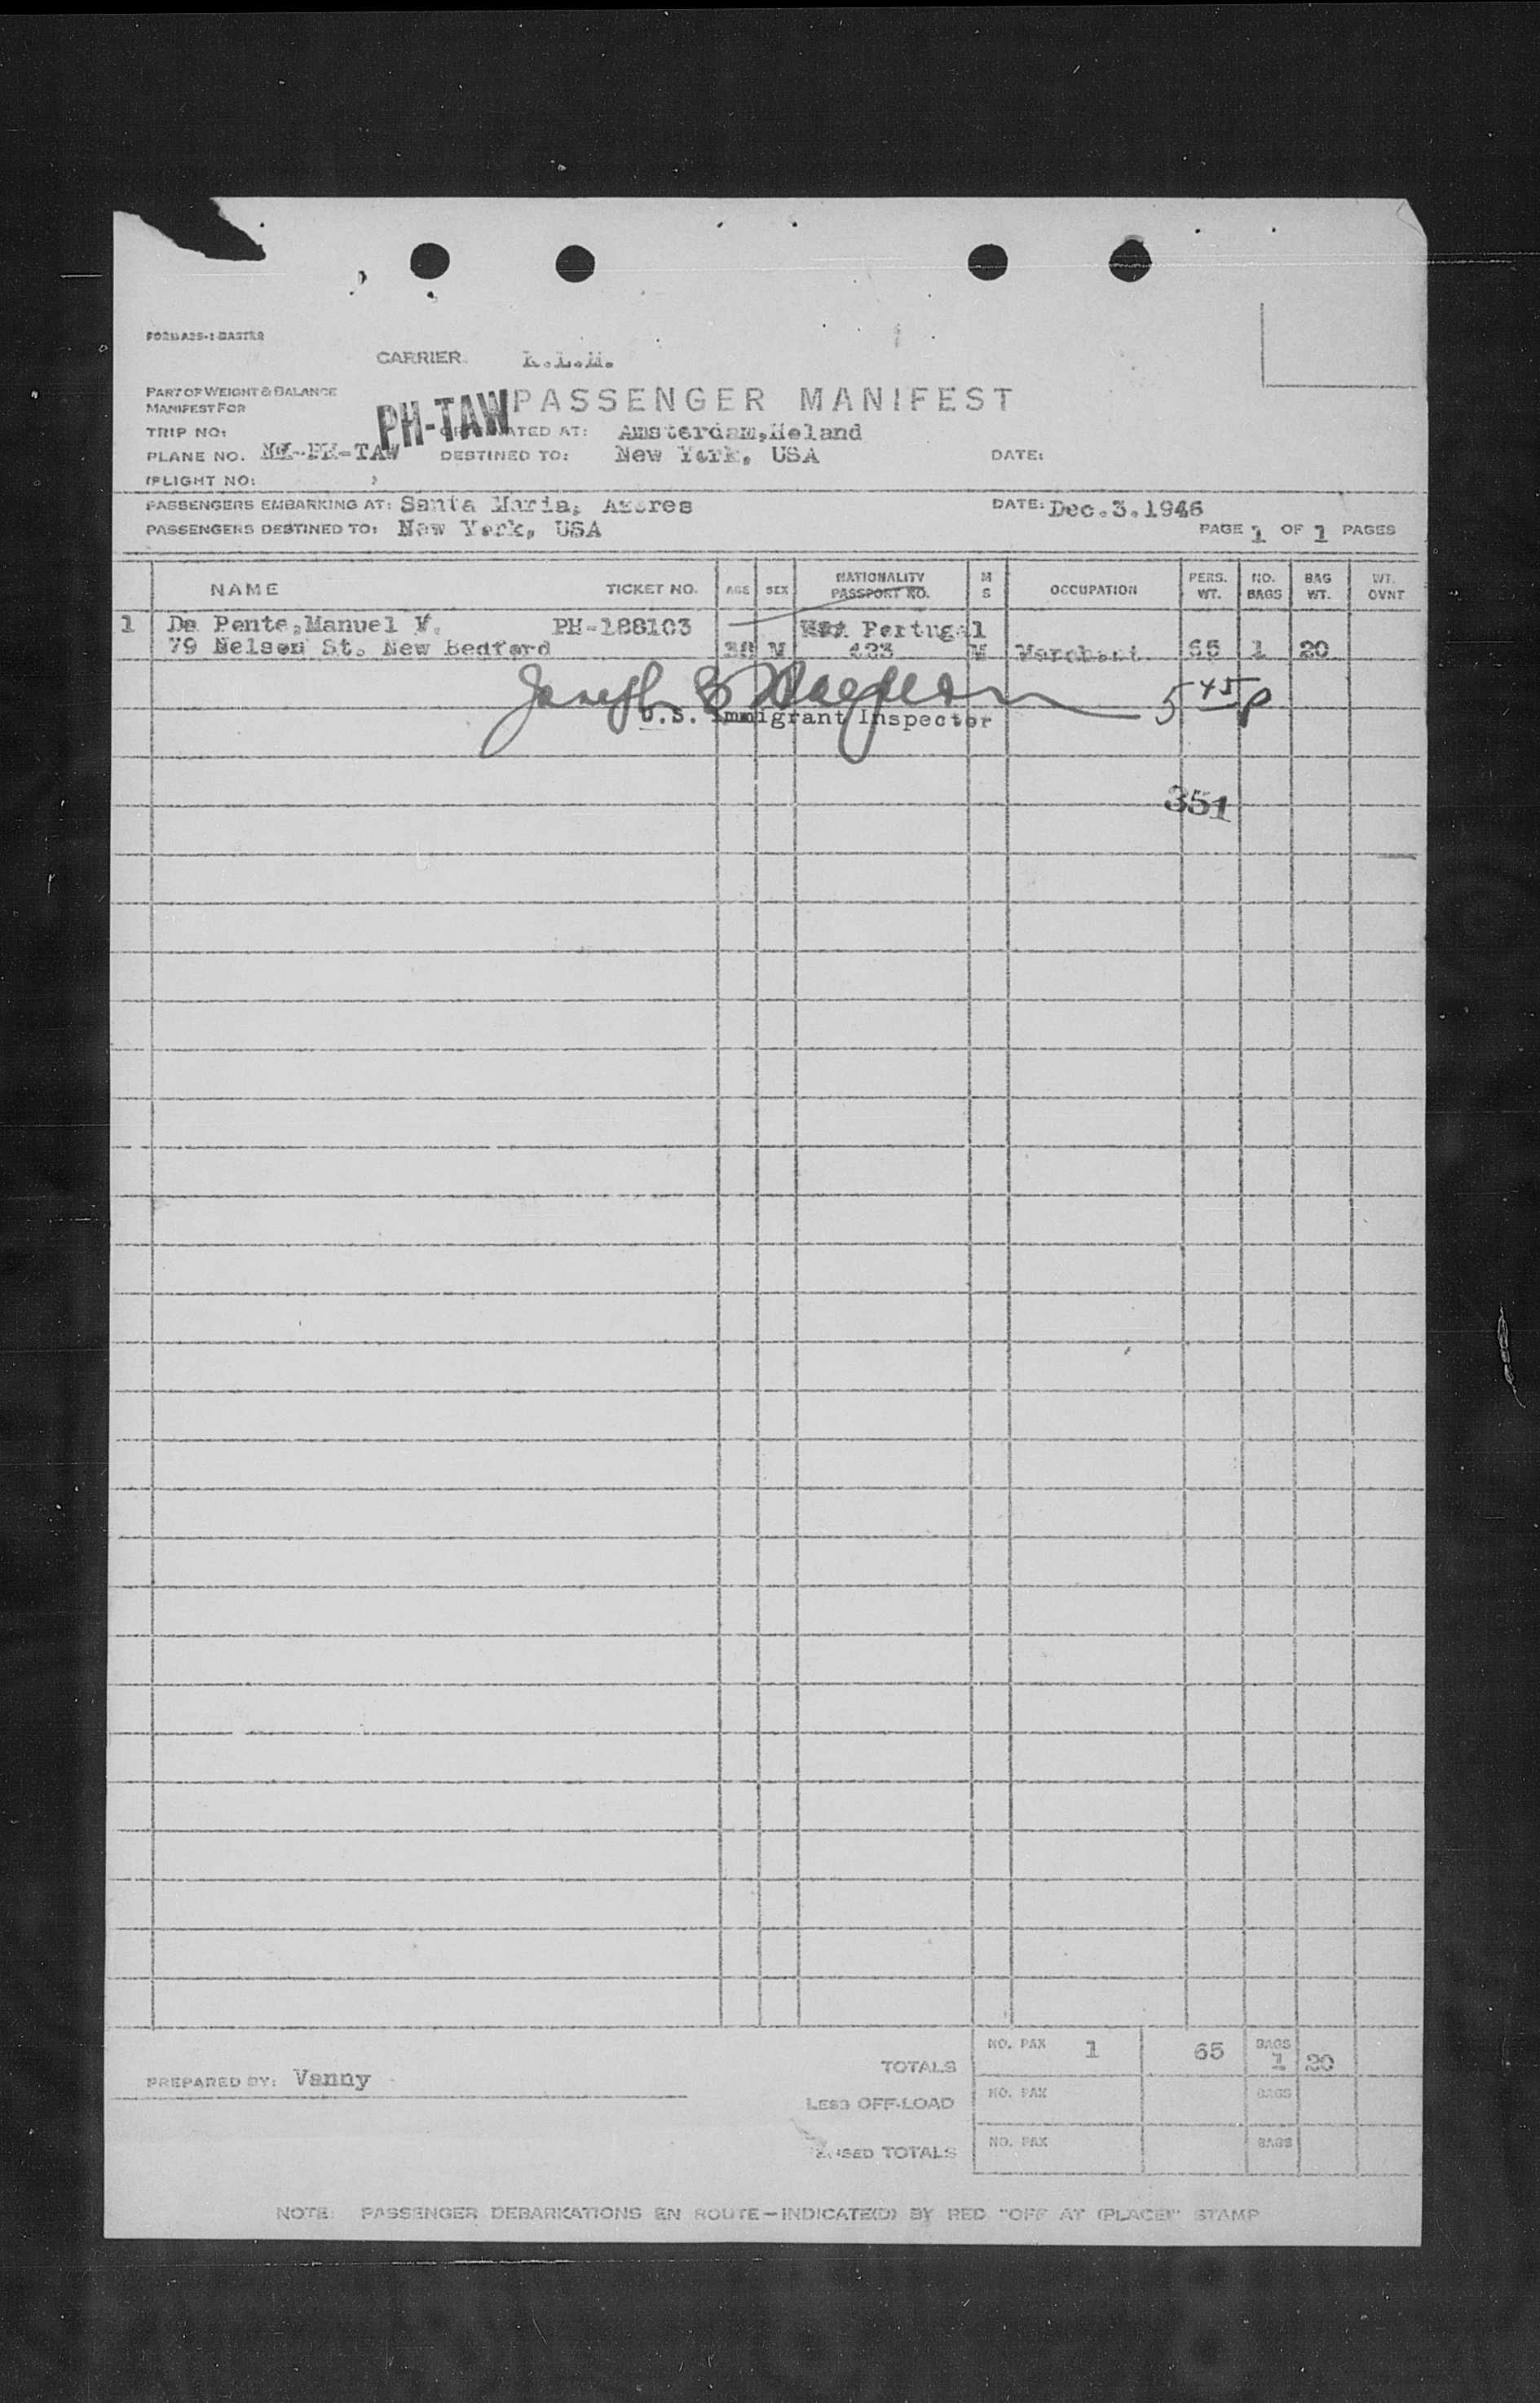 FORM A25-1 MASTER
CARRIER: K.L.M.
PART OF WEIGHT & BALANCE
MANIFEST FOR
PH-TAW
PASSENGER MANIFEST
TRIP NO: ORIGINATED AT: Amsterdam,Holand
PLANE NO. PH-TAW DESTINED TO: New York, USA DATE:
(FLIGHT NO: )
PASSENGERS EMBARKING AT: Santa Maria, Azores DATE: Dec.3.1946
PASSENGERS DESTINED TO: New York, USA PAGE 1 OF 1 PAGES
NAME TICKET NO. AGE SEX NATIONALITY PASSPORT NO. M S OCCUPATION PERS. WT. NO. BAGS BAG WT. WT. OVNT
1 Da Ponte,Manuel V. PH-188103 Portugal
79 Nelson St. New Bedford 38 M 423 M Merchant 65 1 20
Joseph 5 45 p
U.S. Immigrant Inspector
351
TOTALS NO. PAX 1 65 BAGS 1 20
PREPARED BY: Vanny
LESS OFF-LOAD NO. PAX BAGS
REVISED TOTALS NO. PAX BAGS
NOTE: PASSENGER DEBARKATIONS EN ROUTE—INDICATE(D) BY RED "OFF AT (PLACE)" STAMP